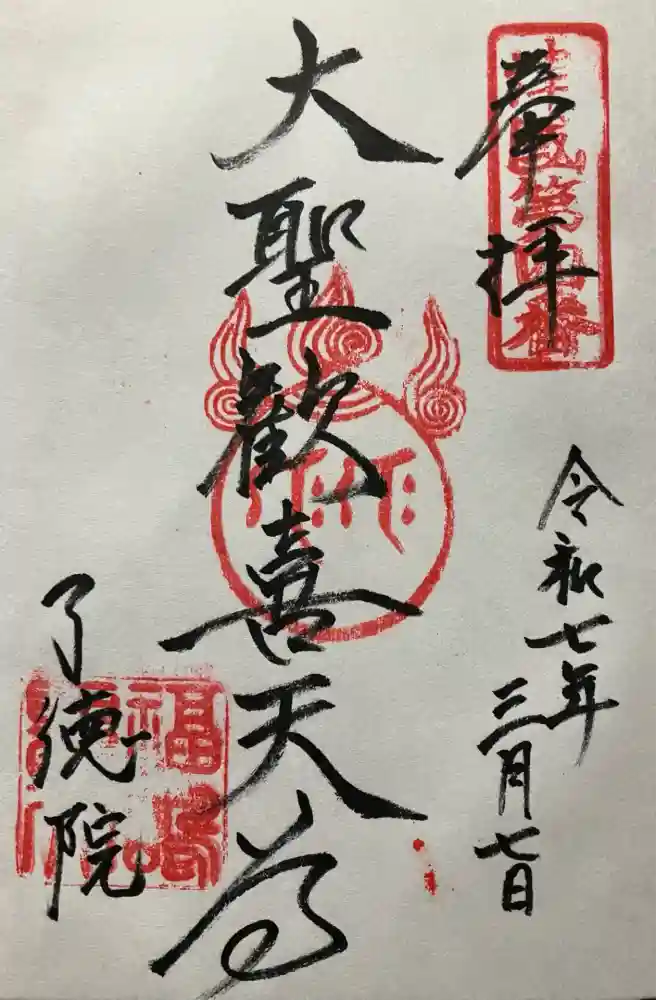 奉拝
第四番
大聖歓喜天
令和七年
三月七日
了徳院